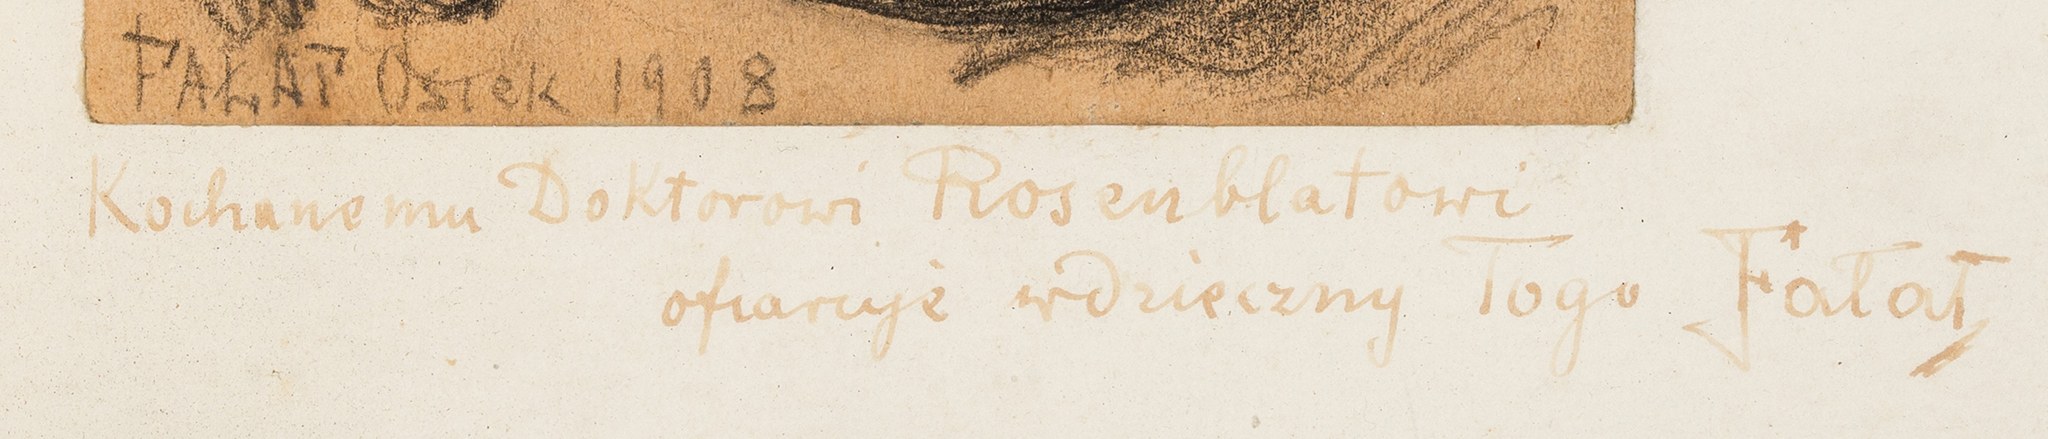 FAŁAT Osiek 1908
Kochanemu Doktorowi Rosenblatowi
ofiaruje wdzięczny Togo Fałat